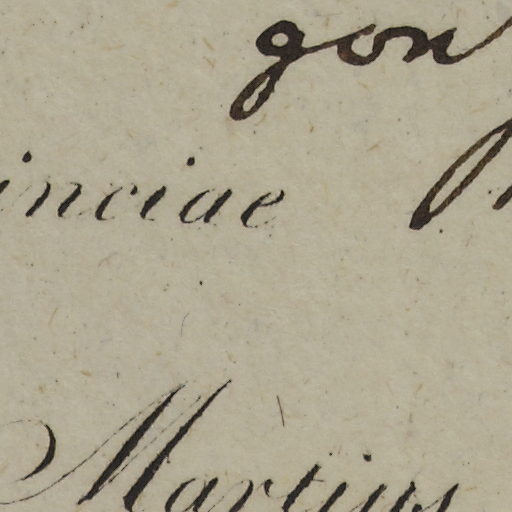 gon
inciae
Martius